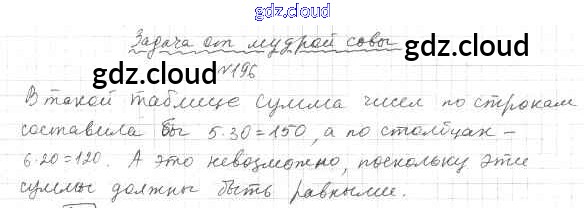 gdz.cloud
Задача от мудрой совы
gdz.cloud gdz.cloud
№196
В такой таблице сумма чисел по строкам
составила бы 5·30=150, а по столбцам –
6·20=120. А это невозможно, поскольку эти
суммы должны быть равными.